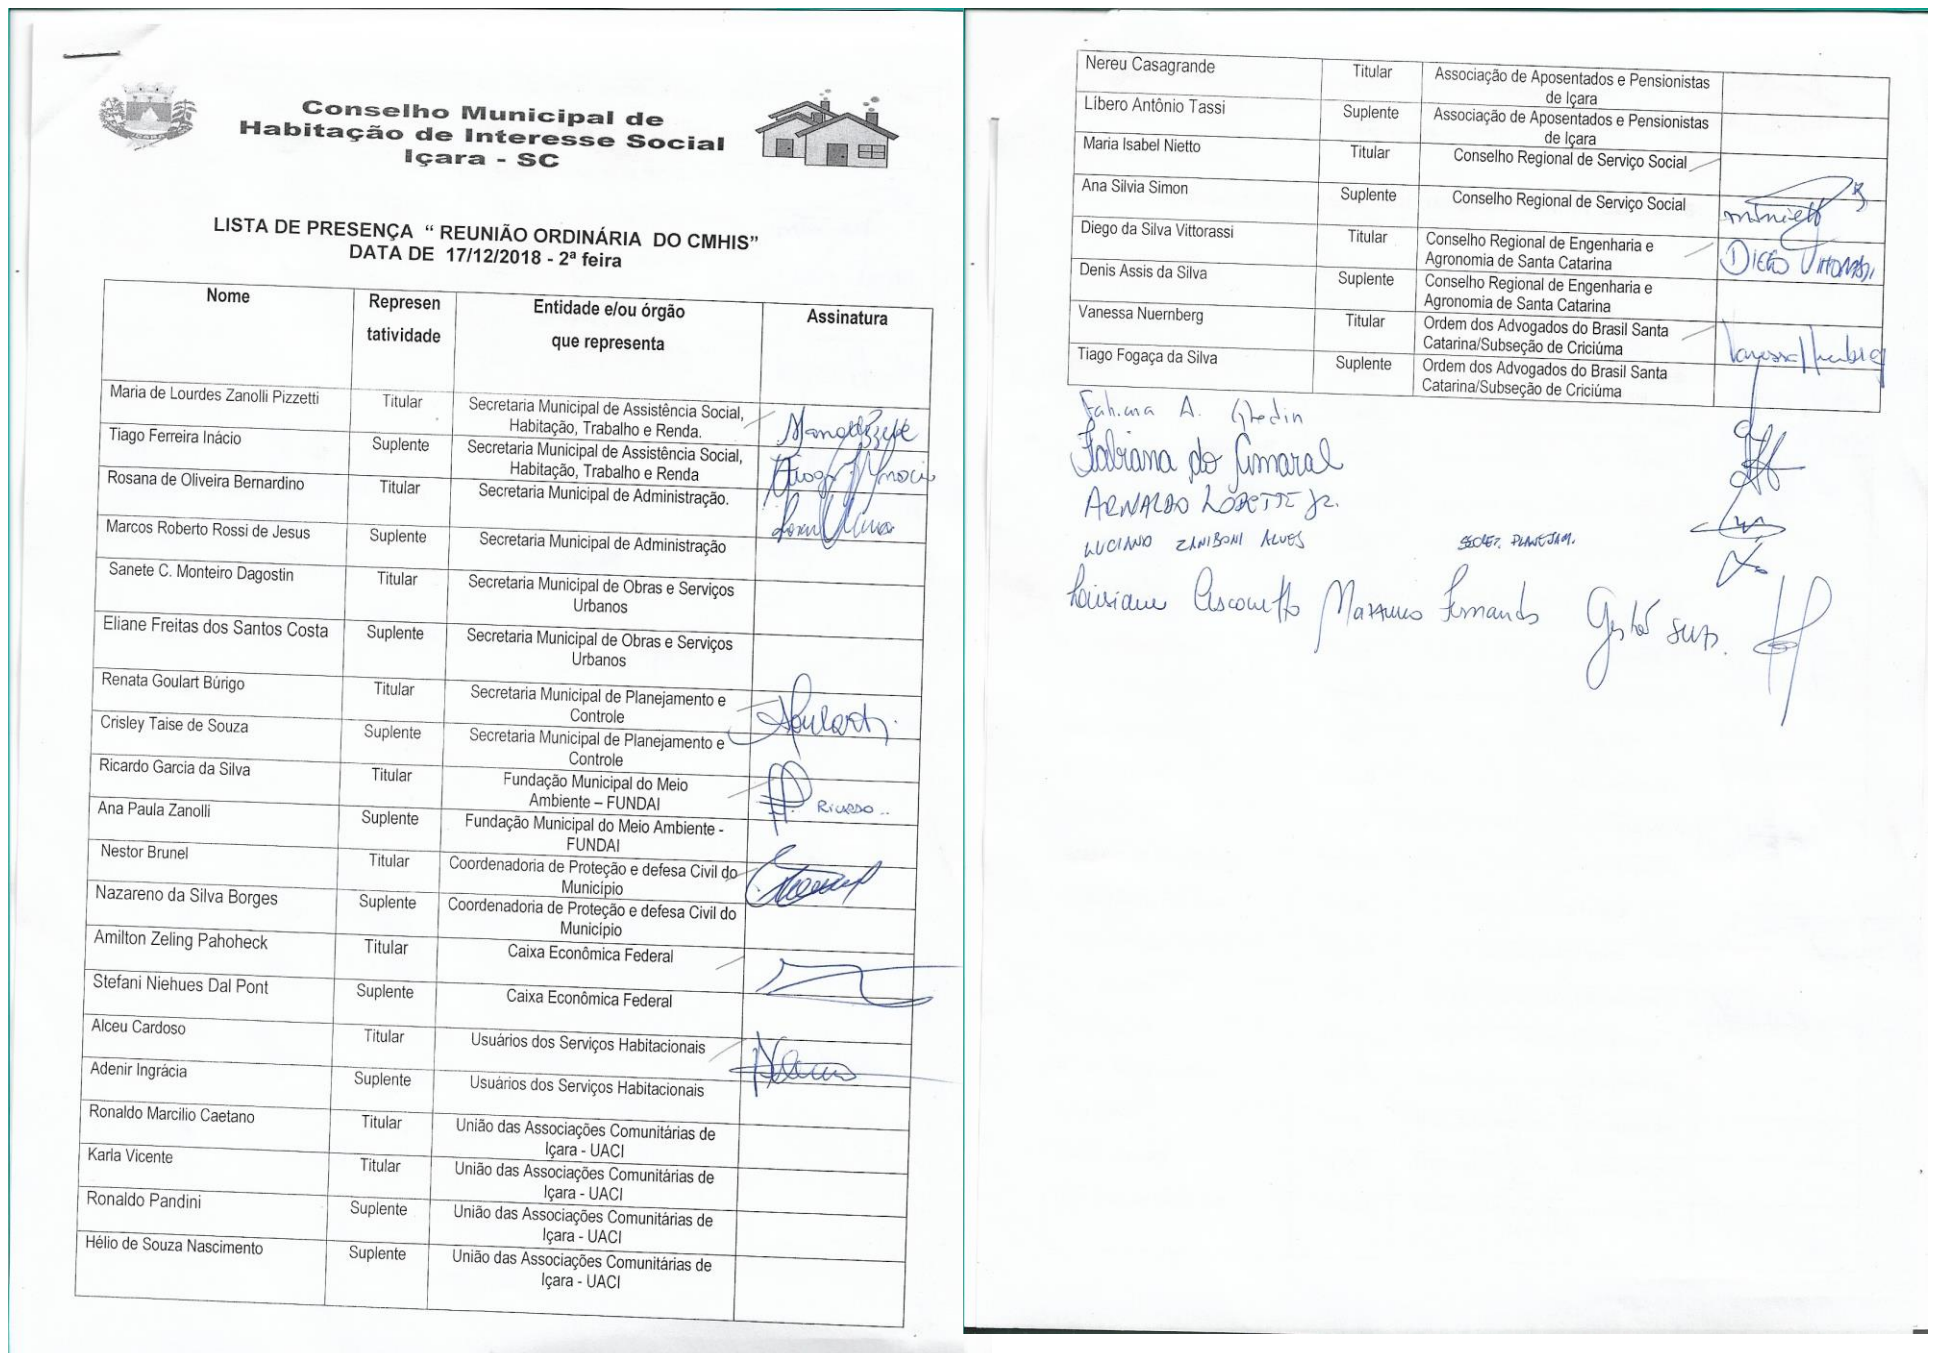 Conselho Municipal de
Habitação de Interesse Social
Içara - SC
LISTA DE PRESENÇA “ REUNIÃO ORDINÁRIA DO CMHIS”
DATA DE 17/12/2018 - 2ª feira
Nome Represen tatividade Entidade e/ou órgão que representa Assinatura
Maria de Lourdes Zanolli Pizzetti Titular Secretaria Municipal de Assistência Social,
Habitação, Trabalho e Renda.
Tiago Ferreira Inácio Suplente Secretaria Municipal de Assistência Social,
Habitação, Trabalho e Renda
Rosana de Oliveira Bernardino Titular Secretaria Municipal de Administração.
Marcos Roberto Rossi de Jesus Suplente Secretaria Municipal de Administração
Sanete C. Monteiro Dagostin Titular Secretaria Municipal de Obras e Serviços
Urbanos
Eliane Freitas dos Santos Costa Suplente Secretaria Municipal de Obras e Serviços
Urbanos
Renata Goulart Búrigo Titular Secretaria Municipal de Planejamento e
Controle
Crisley Taise de Souza Suplente Secretaria Municipal de Planejamento e
Controle
Ricardo Garcia da Silva Titular Fundação Municipal do Meio
Ambiente – FUNDAI
Ana Paula Zanolli Suplente Fundação Municipal do Meio Ambiente -
FUNDAI
Nestor Brunel Titular Coordenadoria de Proteção e defesa Civil do
Município
Nazareno da Silva Borges Suplente Coordenadoria de Proteção e defesa Civil do
Município
Amilton Zeling Pahoheck Titular Caixa Econômica Federal
Stefani Niehues Dal Pont Suplente Caixa Econômica Federal
Alceu Cardoso Titular Usuários dos Serviços Habitacionais
Adenir Ingrácia Suplente Usuários dos Serviços Habitacionais
Ronaldo Marcilio Caetano Titular União das Associações Comunitárias de
Içara - UACI
Karla Vicente Titular União das Associações Comunitárias de
Içara - UACI
Ronaldo Pandini Suplente União das Associações Comunitárias de
Içara - UACI
Hélio de Souza Nascimento Suplente União das Associações Comunitárias de
Içara - UACI
Nereu Casagrande Titular Associação de Aposentados e Pensionistas
de Içara
Líbero Antônio Tassi Suplente Associação de Aposentados e Pensionistas
de Içara
Maria Isabel Nietto Titular Conselho Regional de Serviço Social
Ana Silvia Simon Suplente Conselho Regional de Serviço Social
Diego da Silva Vittorassi Titular Conselho Regional de Engenharia e
Agronomia de Santa Catarina
Denis Assis da Silva Suplente Conselho Regional de Engenharia e
Agronomia de Santa Catarina
Vanessa Nuernberg Titular Ordem dos Advogados do Brasil Santa
Catarina/Subseção de Criciúma
Tiago Fogaça da Silva Suplente Ordem dos Advogados do Brasil Santa
Catarina/Subseção de Criciúma
A. Ghedin
Fabiana do Amaral
ARNALDO LODETTE JR.
LUCIANO ZANIBONI ALVES SECRET. PLANEJAM.
Fernando